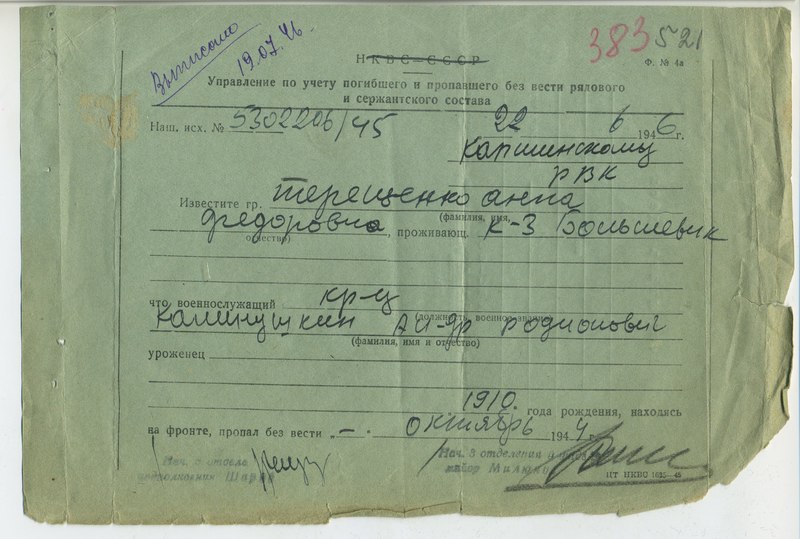 Выписано
19.07.46.
383521
НКВС-СССР
Ф. № 4а
Управление по учету погибшего и пропавшего без вести рядового
и сержантского состава
Наш. исх. № 5302206/45
22 6 1946 г.
Каршинскому
РВК
Известите гр. Терещенко Анна
(фамилия, имя,
Федоровна, проживающ. к-з Большевик
отчество)
что военнослужащий кр-ц
(должность, военное звание)
Калинушкин Ал-др Родионович
(фамилия, имя и отчество)
уроженец
1910. года рождения, находясь
на фронте, пропал без вести „—. октябрь 1944 г.
Нач. отдела
Нач. 3 отделения
майор
ЦТ НКВС